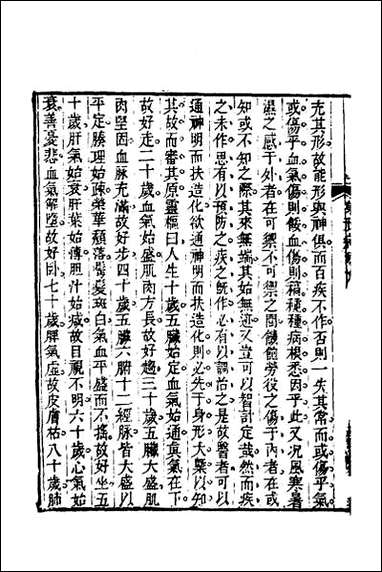 充其形故能形與神俱而百疾不作否則一失其常而或傷乎氣
或傷乎血氣傷則餒血傷則稿種種病根悉因乎此又況風寒暑
濕之感于外者在可禦不可禦之間饑飽勞役之傷于內者在或
知或不知之際其來無端其始無迹又豈可以智計定哉然而疾
之未作思有以預防之疾之旣作必有以調治之是故醫者可以
通神明而扶造化欲通神明而扶造化則必先于身形大槩以知
其故而審其原靈樞曰人生十歲五臟始定血氣始通眞氣在下
故好走二十歲血氣始盛肌肉方長故好趨三十歲五臟大盛肌
肉堅因血脉充滿故好步四十歲五臟六腑十二經脉皆大盛以
平定腠理始疎榮華頹落鬢髮斑白氣血平盛而不搖故好坐五
十歲肝氣始衰肝葉始薄膽汁始減故目視不明六十歲心氣始
衰善憂悲血氣解墮故好卧七十歲脾氣虛故皮膚枯八十歲肺